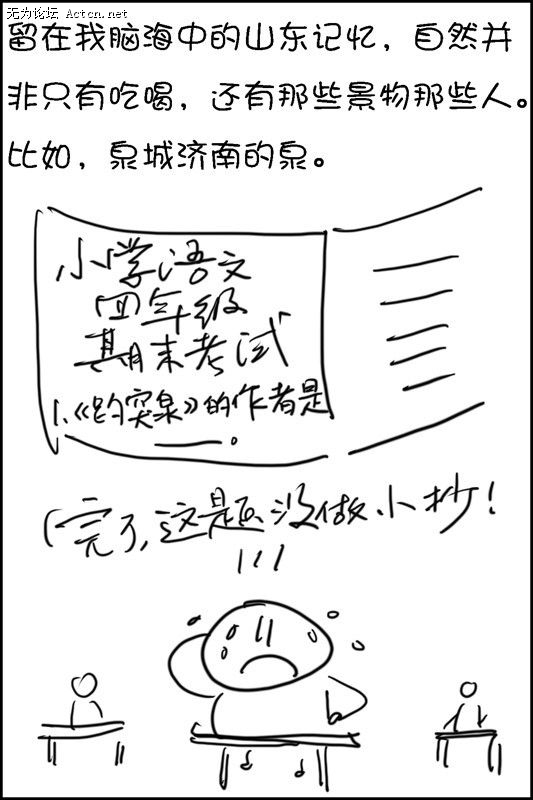 无为论坛 Actcn.net
留在我脑海中的山东记忆，自然并
非只有吃喝，还有那些景物那些人。
比如，泉城济南的泉。
小学语文
四年级
期末考试
1.《趵突泉》的作者是
____。
(完了，这题没做小抄！